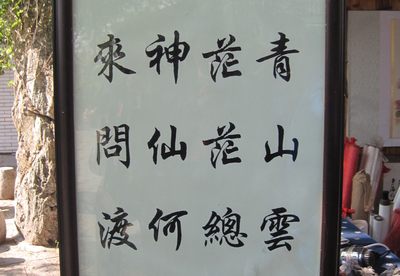 青山雲
茫茫總
神仙何
來問渡